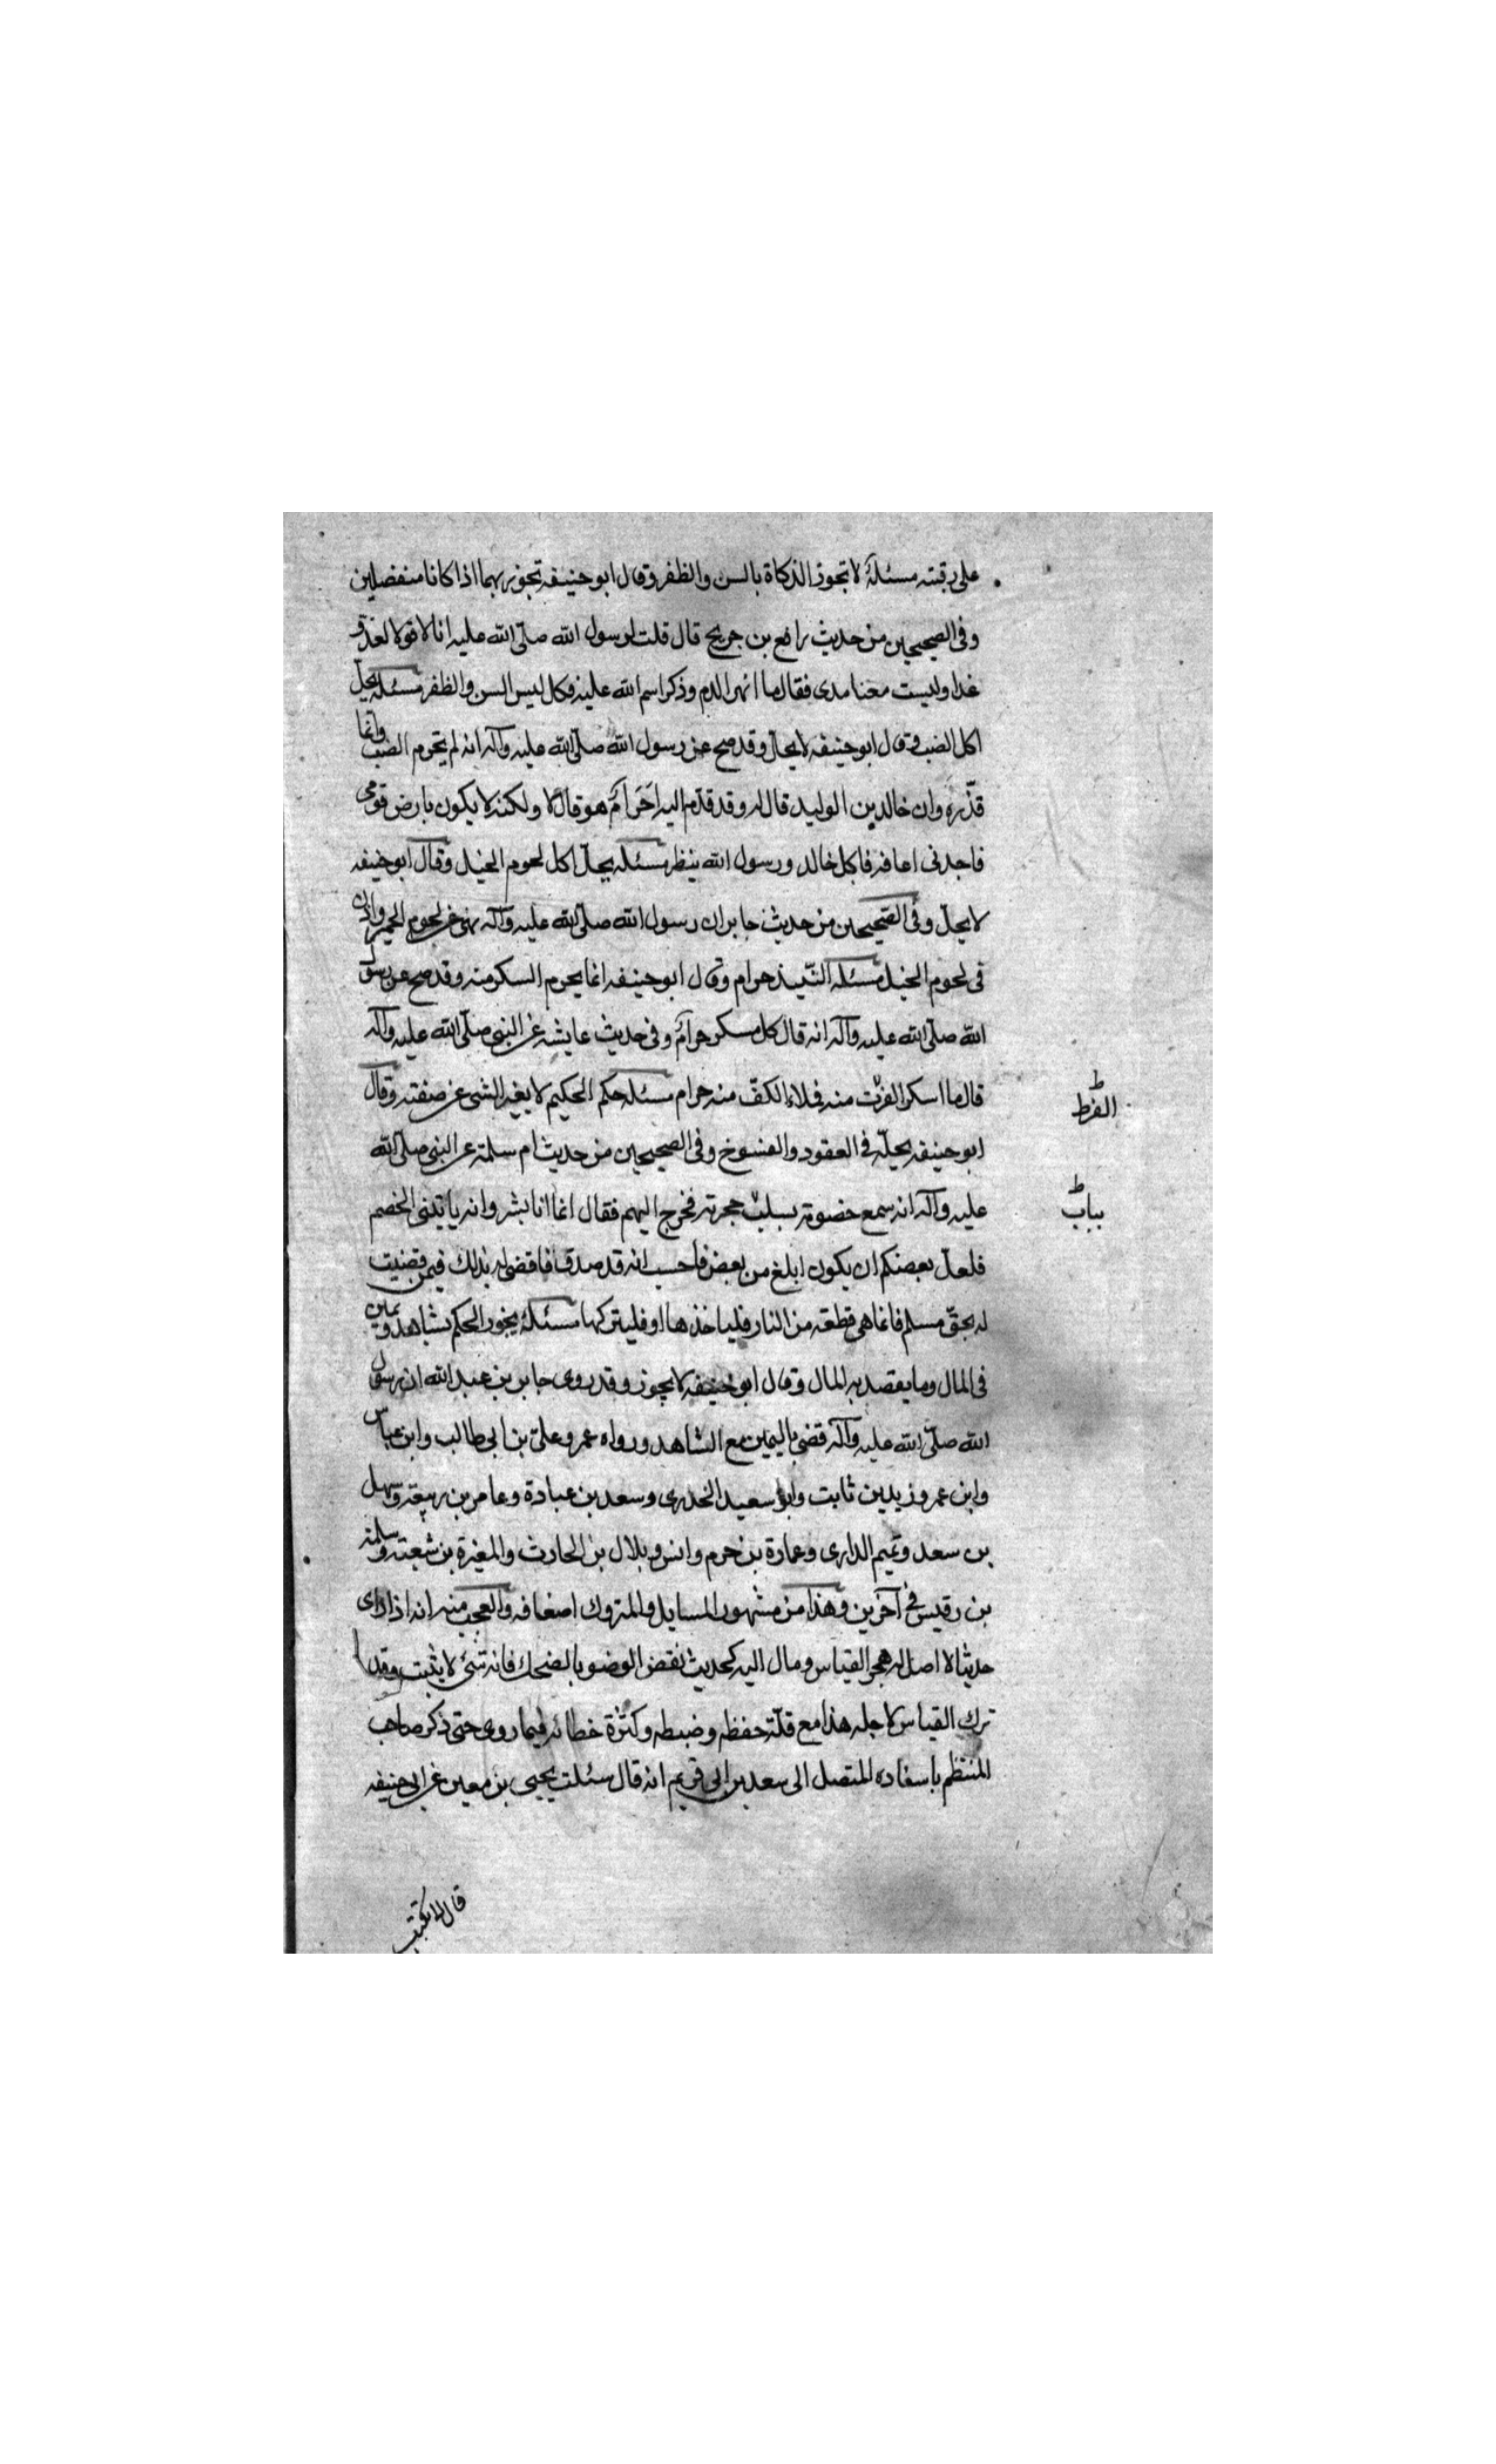 على رقبته مسئلة لا تجوز الذكاة بالسن والظفر وقال ابو حنيفه تجوز بهما اذا كانا منفصلين
وفى الصحيحين من حديث رافع بن جريج قال قلت لرسول الله صلّى الله عليه انا لاقوا لعدو
غدا وليست معنا مدى فقال ما انهر الدم وذكر اسم الله عليه فكل ليس السن والظفر مسئله يحلّ
اكل الضب وقال ابو حنيفه لا يحلّ وقد صح عن رسول الله صلّى الله عليه وآله انه لم يحرم الضب وانما
قذّره وان خالد بن الوليد قال له وقد قدّم اليه احَرامٌ هو قال لا ولكنه لا يكون بارض قومى
فاجدنى اعافه فاكل خالد ورسول الله ينظر مسئله يحلّ اكل لحوم الخيل وقال ابو حنيفه
لا يحلّ وفى الصّحيحين من حديث جابر ان رسول الله صلّى الله عليه وآله نهى عن لحوم الحمير واذن
فى لحوم الخيل مسئله النّبيذ حرام وقال ابو حنيفه انما يحرم السكر منه وقد صح عن رسول
الله صلّى الله عليه وآله انه قال كل مسكر حرامٌ وفى حديث عايشه عن النبى صلّى الله عليه وآله
قال ما اسكر الفرت منه فملاء الكفّ منه حرام مسئله حكم الحكيم لا يغير الشى عن صفته وقال
الفرط
ابو حنيفه يحيله فى العقود والفسوخ وفى الصحيحين من حديث ام سلمة عن النبى صلّى الله
عليه وآله انه سمع خصومة ببباب حجرته فخرج اليهم فقال انما انا بشر وانه ياتينى الخصم
بباب
فلعلّ بعضكم ان يكون ابلغ من بعض فاحسب انه قد صدق فاقضى له بذلك فمن قضيت
له بحقّ مسلم فانما هى قطعه من النار فلياخذها او فليتركها مسئلة يجوز الحكم بشاهد ويمين
فى المال وما يقصد به المال وقال ابو حنيفه لا يجوز وقد روى جابر بن عبد الله ان رسول
الله صلّى الله عليه وآله قضى باليمين مع الشاهد ورواه عمر وعلىّ بن ابى طالب وابن عباس
وابن عمر وزيد بن ثابت وابو سعيد الخدرى وسعد بن عبادة وعامر بن ربيعة وسهل
بن سعد وتميم الدارى وعمارة بن حرم وانس وبلال بن الحارث والمغيرة بن شعبة وسلمة
بن رقيس فى آخرين وهذا من مشهور المسايل والمتروك اضعافه والعجب منه انه اذا راى
حديثا لا اصل له هجر القياس ومال اليه كحديث نقض الوضو بالضحك فانه شئ لا يثبت وقد
ترك القياس لاجله هذا مع قلّة حفظه وضبطه وكثرة خطائه فيما روى حتى ذكر صاحب
المنتظم باسناده المتصل الى سعد بن ابى مريم انه قال سئلت يحيى بن معين عن ابى حنيفه
قال لا يكتب